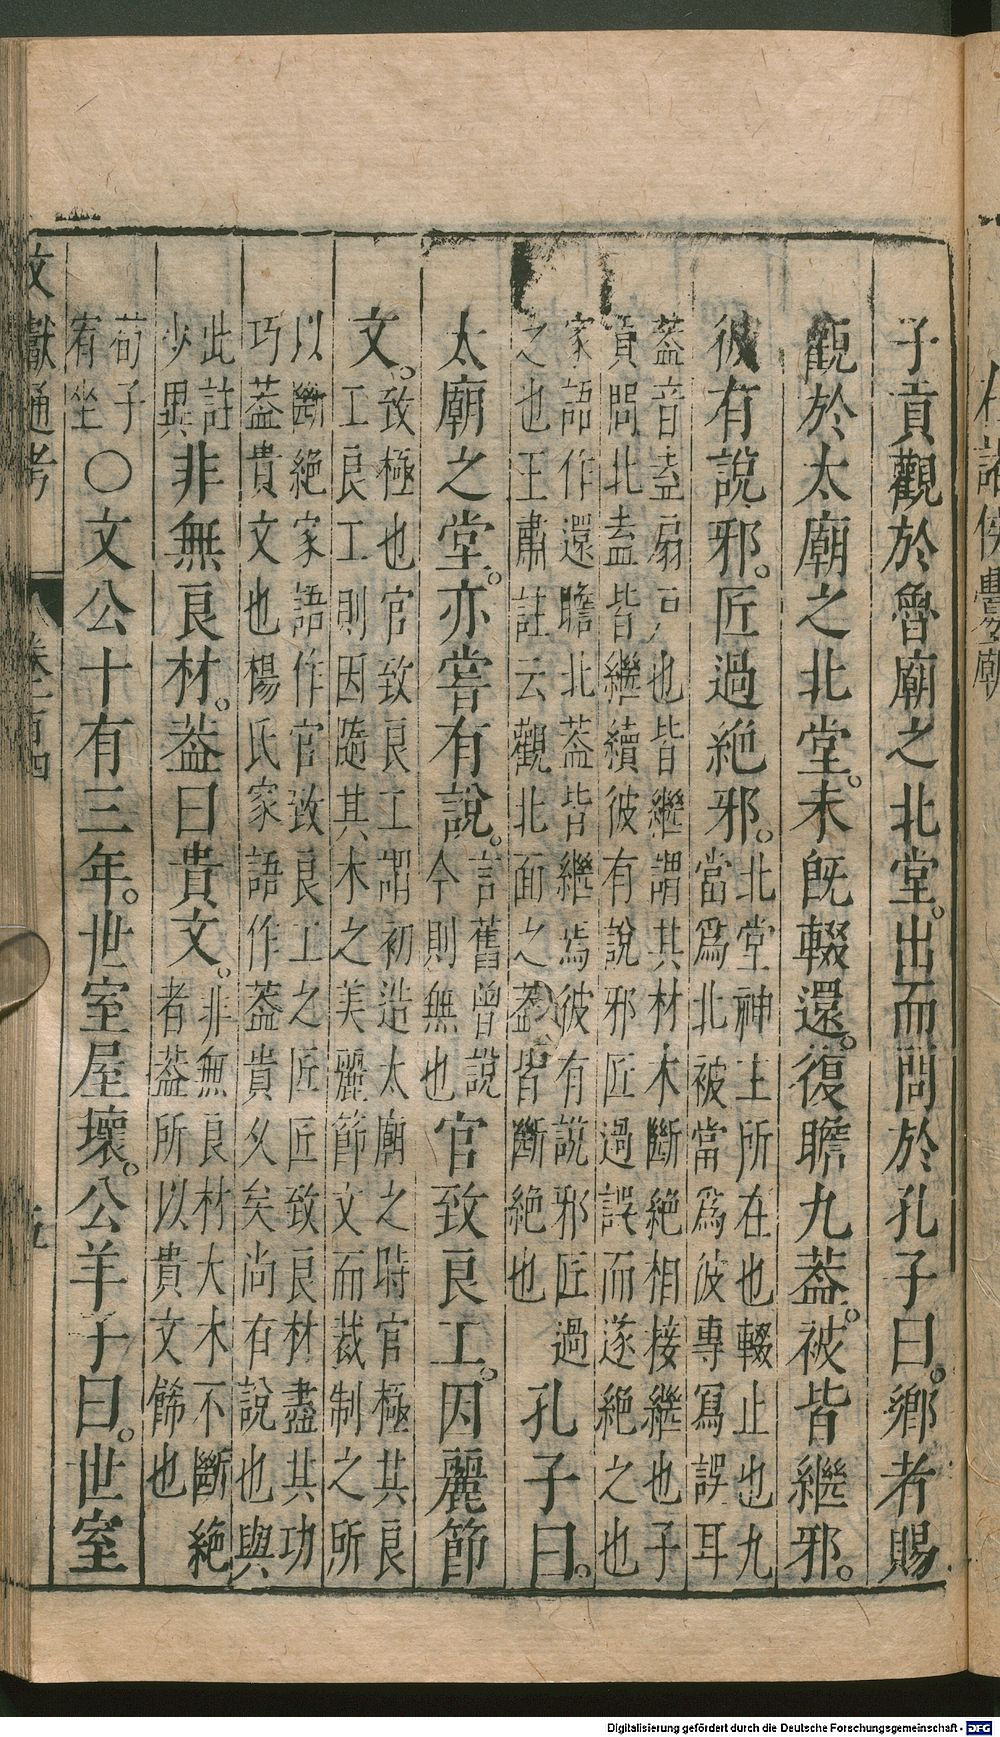 子貢觀於魯廟之北堂。出而問於孔子曰。鄉者賜
觀於太廟之北堂。未旣輟還。復瞻九葢。被皆繼邪。
彼有說邪。匠過絶邪。北堂神主所在也輟止也九
當爲北被當爲彼專寫誤耳
葢音盍扇戸也皆繼謂其材木斷絶相接繼也子
貢問北盍皆繼續彼有說邪匠過誤而遂絶之也
家語作還瞻北葢皆繼焉彼有說邪匠過
之也王肅註云觀北面之葢皆斷絶也
孔子曰。
太廟之堂。亦嘗有說。言舊曾說
今則無也
官致良工。因麗節
文。致極也官致良工謂初造太廟之時官極其良
工良工則因隨其木之美麗節文而裁制之所
以斷絶家語作官致良工之匠匠致良材盡其功
巧葢貴文也楊氏家語作葢貴久矣尚有說也與
此註
少異
非無良材。葢曰貴文。非無良材大木不斷絶
者葢所以貴文餙也
荀子
宥坐
○文公十有三年。世室屋壞。公羊子曰。世室
文獻通考 卷一百四 五
Digitalisierung gefördert durch die Deutsche Forschungsgemeinschaft - DFG